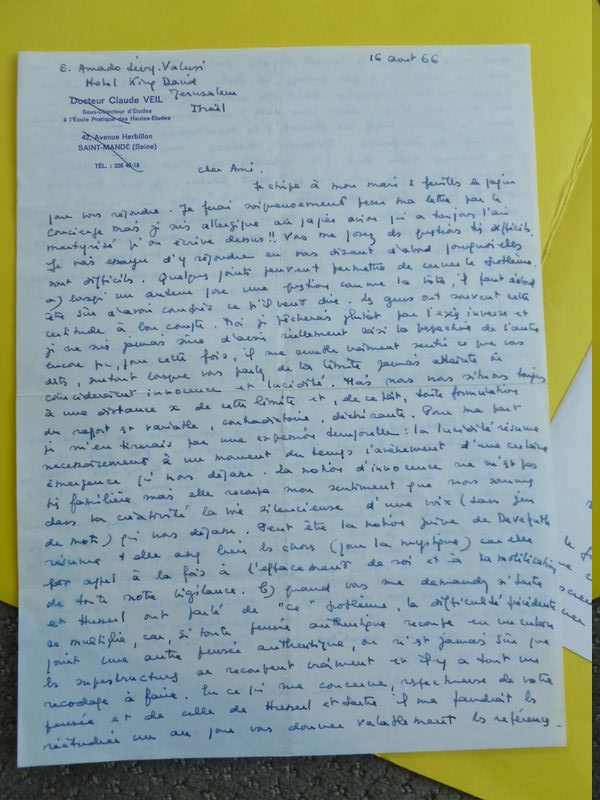 E. Amado Lévy-Valensi
16 août 66
Hotel King David
Jerusalem
Israël
Docteur Claude VEIL
Sous-Directeur d'Études
à l'École Pratique des Hautes-Études
42, Avenue Herbillon
SAINT-MANDÉ (Seine)
TÉL. : 328 42-18
Cher Ami.
Je chipe à mon mari 2 feuilles de papier
pour vous répondre. Je ferai soigneusement peser ma lettre par le
concierge mais je suis allergique au papier avion qui a toujours l'air
martyrisé qu'on écrive dessus!! Vous me posez des questions très difficiles.
Je vais essayer d'y répondre en vous disant d'abord pourquoi elles
sont difficiles. Quelques points peuvent permettre de cerner le problème.
a) lorsqu'un auteur pose une question comme la vôtre, il faut d'abord
être sûr d'avoir compris ce qu'il veut dire. Les gens ont souvent cette
certitude à bon compte. Moi je pêcherais plutôt par l'excès inverse et
je ne suis jamais sûre d'avoir réellement saisi la de l'autre
encore que, pour cette fois, il me semble vraiment sentir ce que vous
dites, surtout lorsque vous parlez de la limite jamais atteinte où
coïncideraient innocence et lucidité. Mais nous nous situons toujours
à une distance x de cette limite et, de ce fait, toute formulation
du rapport est variable, contradictoire, déchirante. Pour ma part
je m'en tirerais par une expression temporelle : la lucidité résume
nécessairement à un moment du temps l'avènement d'une certaine
émergence qui nous dépasse. La notion d'innocence ne m'est pas
très familière mais elle recoupe mon sentiment que nous sommes
dans la créativité la voie silencieuse d'une voix (sans jeu
de mots) qui nous dépasse. Peut être la notion juive de Devequth
résume-t-elle assez bien les choses (pour la mystique) car elle
fait appel à la fois à l'effacement de soi et à la mobilisation
de toute notre vigilance. b) quand vous me demandez si Sartre
et Husserl ont parlé de "ce" problème, la difficulté précédente
se multiplie, car, si toute pensée authentique recoupe en un certain
point une autre pensée authentique, on n'est jamais sûr que
les superstructures se recoupent vraiment et il y a tout un
recodage à faire. En ce qui me concerne, respectueuse de votre
pensée et de celle de Husserl et Sartre il me faudrait les
réétudier un an pour vous donner valablement les références.